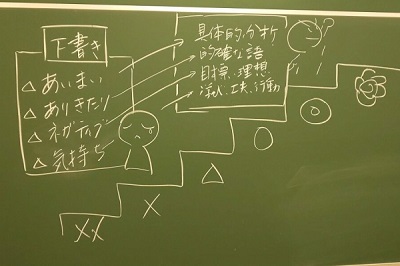 下書き
△ あいまい
△ ありきたり
△ ネガティブ
△ 気持ち
具体的、分析
的確な語
目標、理想
工夫、行動
XX
X
△
○
◎